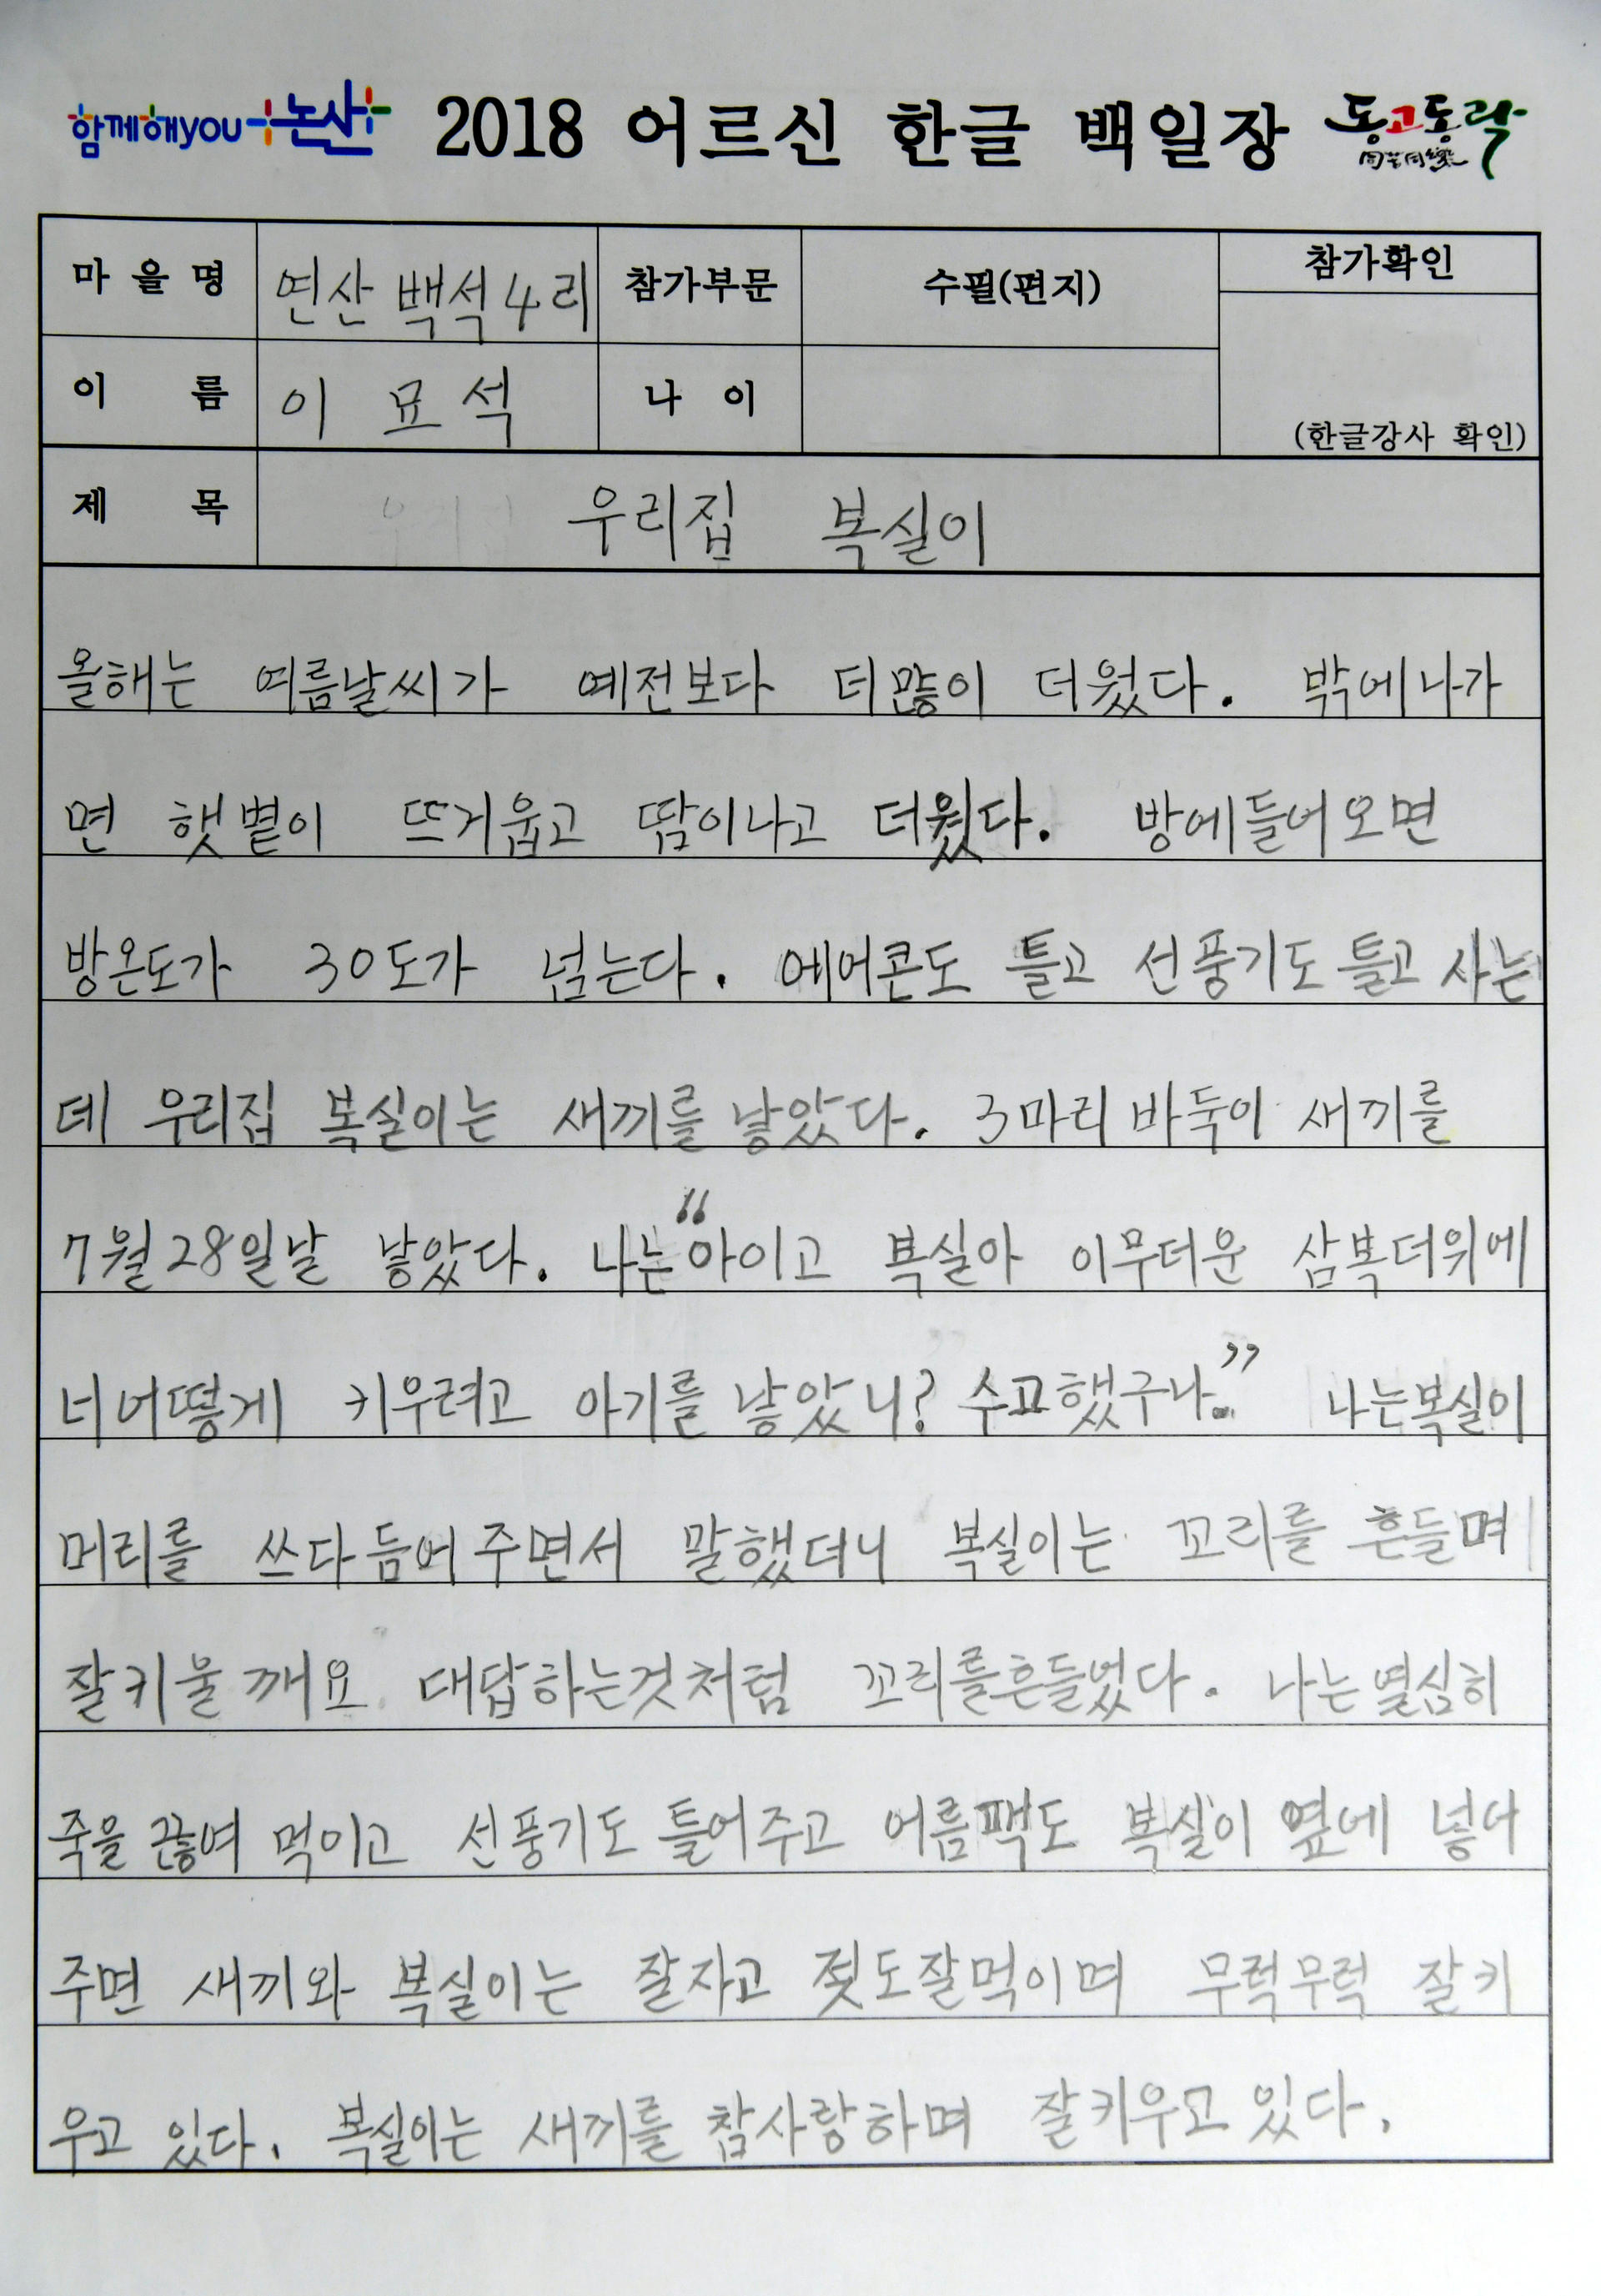 함께해you 논산 2018 어르신 한글 백일장 동고동락 同苦同樂
마을명 연산 백석4리 참가부문 수필(편지) 참가확인
이름 이묘석 나이 (한글강사 확인)
제목 우리집 복실이
올해는 여름날씨가 예전보다 더많이 더웠다. 밖에나가
면 햇볕이 뜨거웁고 땀이나고 더웠다. 방에들어오면
방온도가 30도가 넘는다. 에어콘도 틀고 선풍기도 틀고 사는
데 우리집 복실이는 새끼를 낳았다. 3마리 바둑이 새끼를
7월28일날 낳았다. 나는 "아이고 복실아 이무더운 삼복더위에
너어떻게 키우려고 아기를 낳았니? 수고했구나." 나는복실이
머리를 쓰다듬어주면서 말했더니 복실이는 꼬리를 흔들며
잘키울깨요 대답하는것처럼 꼬리를흔들었다. 나는열심히
죽을 끊여 먹이고 선풍기도 틀어주고 어름팩도 복실이 옆에 넣어
주면 새끼와 복실이는 잘자고 젖도잘먹이며 무럭무럭 잘키
우고 있다. 복실이는 새끼를 참사랑하며 잘키우고 있다.